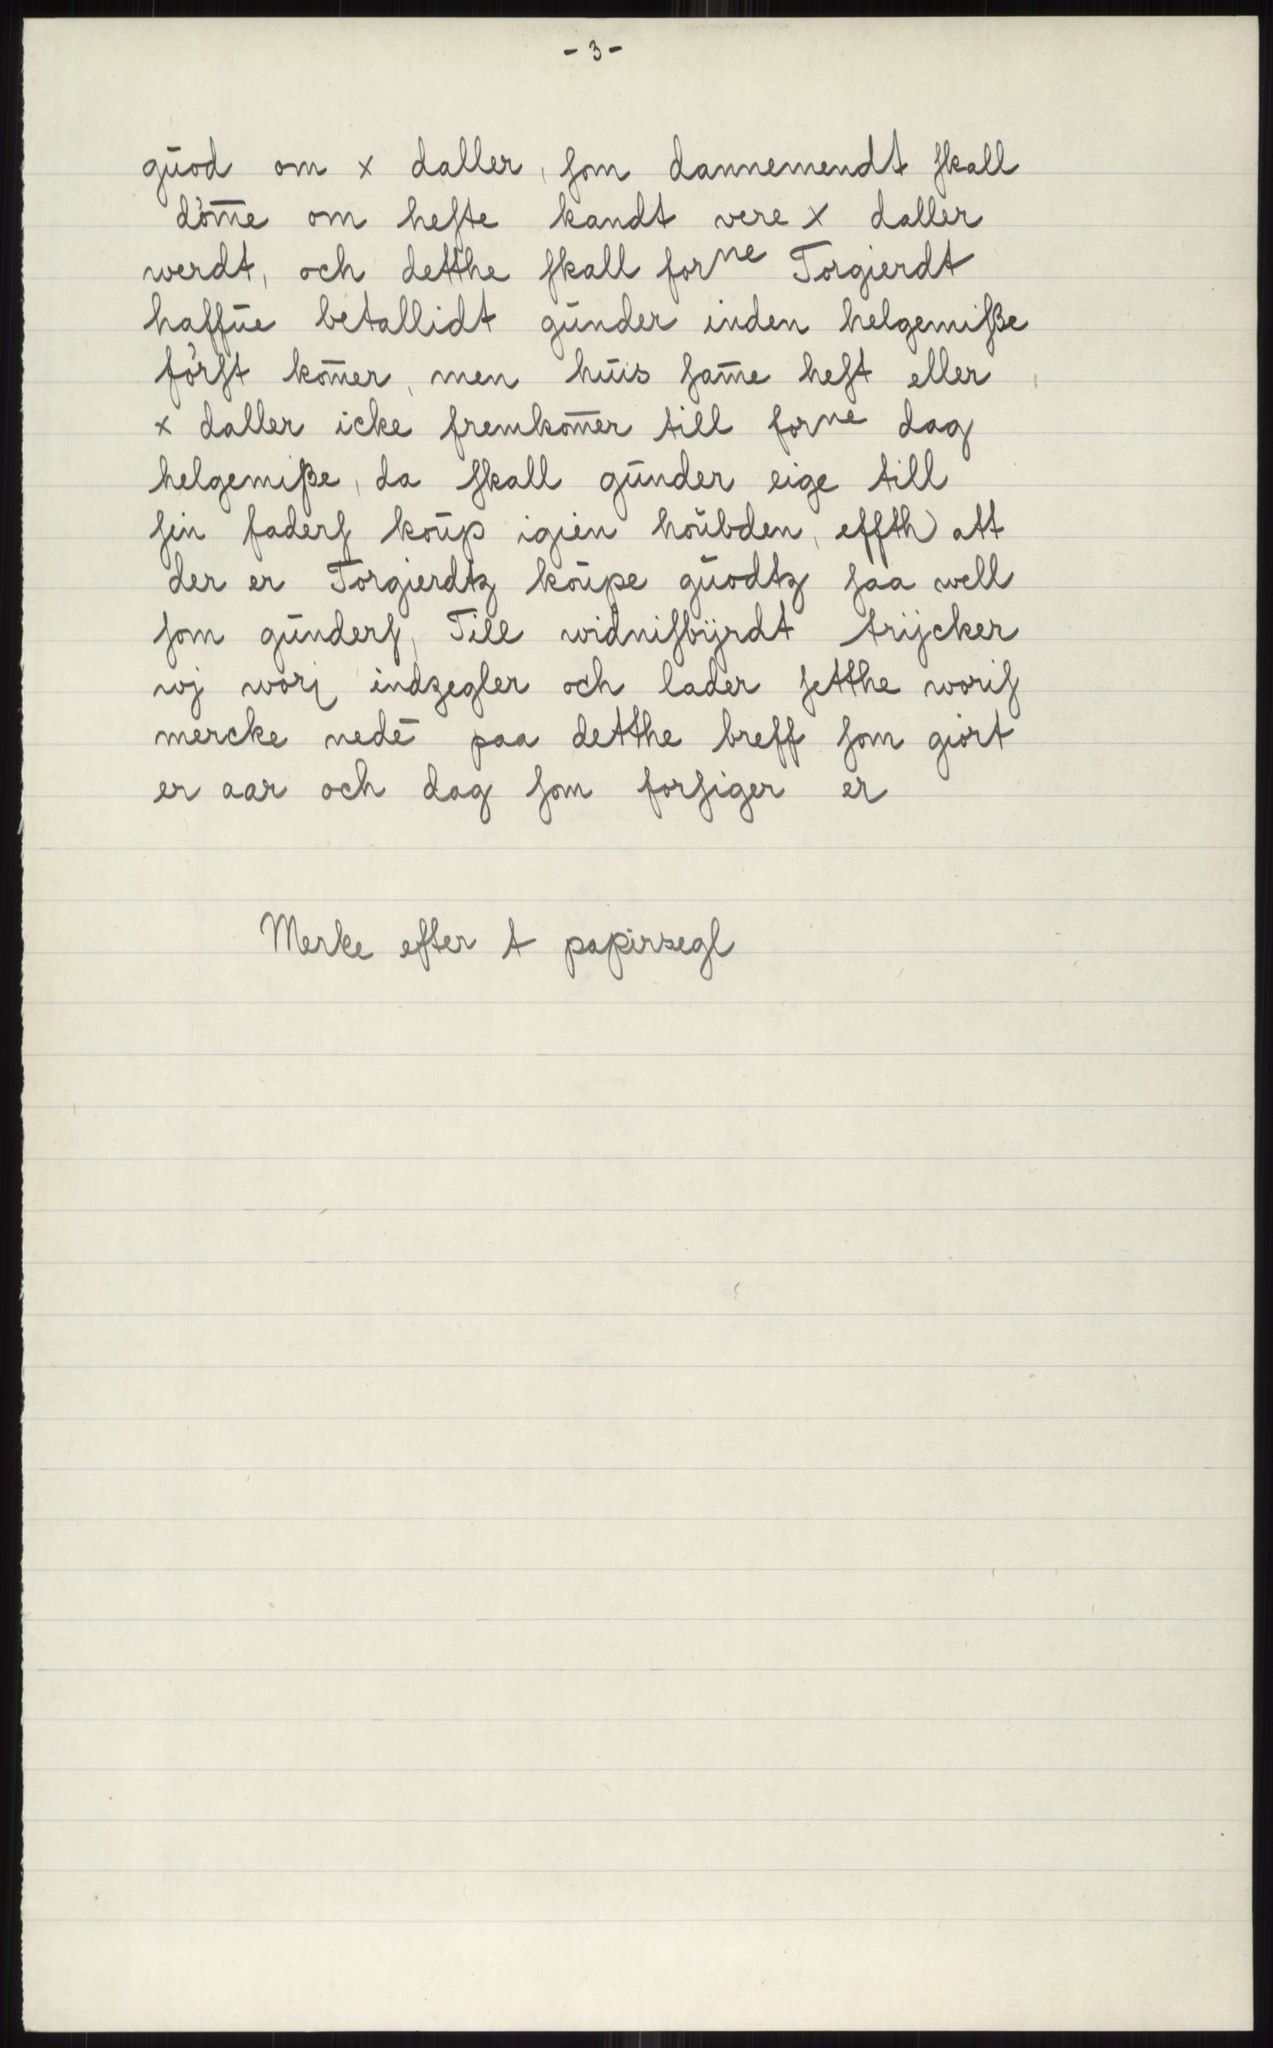 - 3 -
gūod om x daller, ſom dannemendt ſkall
döm̄e om heſte kandt vere x daller
werdt, och detthe ſkall forⁿᵉ Torgierdt
haffūe betallidt gūnder inden helgemiße
förſt kom̄er, men hūis ſam̄e heſt eller
x daller icke fremkom̄er till forⁿᵉ dag
helgemiße, da ſkall gūnder eige till
ſin faderſ koūp igien hoūbden, effth att
der er Torgierdtz koūpe gūodtz ſaa well
ſom gūnderſ, Till widniſbÿrdt trijcker
wj worj indzegler och lader ſetthe woriſ
mercke nedē paa detthe breff ſom giort
er aar och dag ſom forſiger er
Merke efter 1 papirsegl